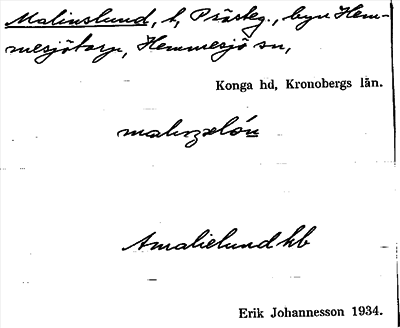 Malinslund, t, Prästg., byn Hem-
mesjötorp, Hemmesjö sn,
Konga hd, Kronobergs län.
Amalielund kb
Erik Johannesson 1934.